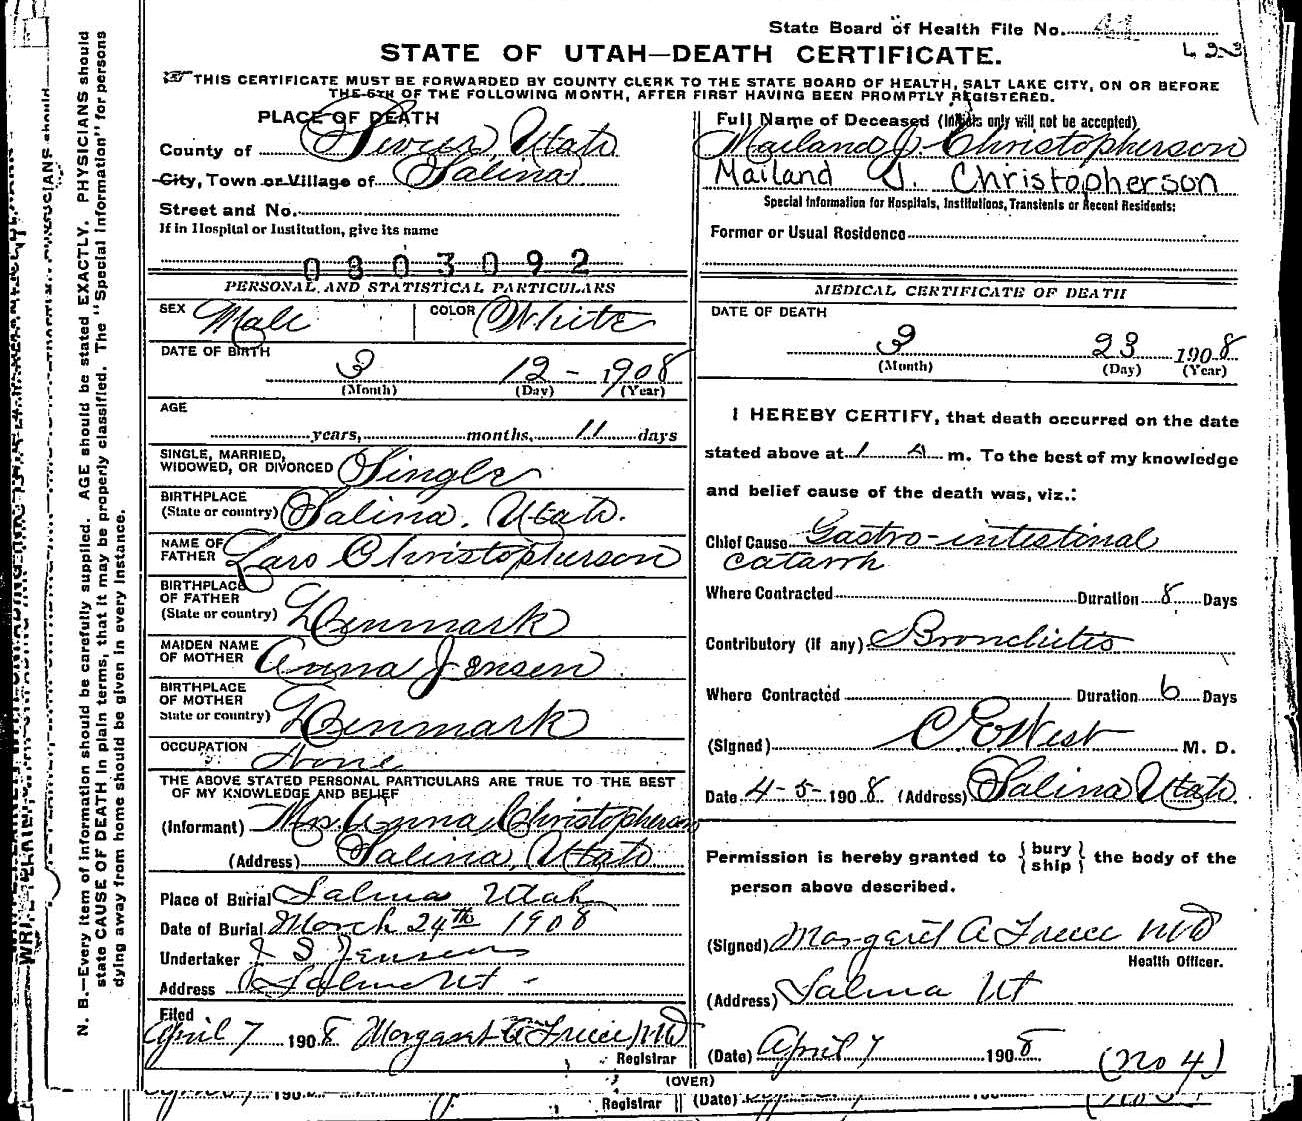 State Board of Health File No. 41
433
STATE OF UTAH—DEATH CERTIFICATE.
THIS CERTIFICATE MUST BE FORWARDED BY COUNTY CLERK TO THE STATE BOARD OF HEALTH, SALT LAKE CITY, ON OR BEFORE
THE 5TH OF THE FOLLOWING MONTH, AFTER FIRST HAVING BEEN PROMPTLY REGISTERED.
PLACE OF DEATH
County of Sevier Utah
City, Town or Village of Salina
Street and No.
If in Hospital or Institution, give its name
0803092
Full Name of Deceased (Initials only will not be accepted)
Mailand J. Christopherson
Mailand J. Christopherson
Special Information for Hospitals, Institutions, Transients or Recent Residents:
Former or Usual Residence
PERSONAL AND STATISTICAL PARTICULARS
SEX Male COLOR White
DATE OF BIRTH
3 12 - 1908
(Month) (Day) (Year)
AGE
years, months, 11 days
SINGLE, MARRIED,
WIDOWED, OR DIVORCED Single
BIRTHPLACE
(State or country) Salina, Utah.
NAME OF
FATHER Lars Christopherson
BIRTHPLACE
OF FATHER
(State or country) Denmark
MAIDEN NAME
OF MOTHER Anna Jensen
BIRTHPLACE
OF MOTHER
State or country) Denmark
OCCUPATION
None
THE ABOVE STATED PERSONAL PARTICULARS ARE TRUE TO THE BEST
OF MY KNOWLEDGE AND BELIEF
(Informant) Mrs. Anna Christopherson
(Address) Salina, Utah
Place of Burial Salina Utah
Date of Burial March 24th 1908
Undertaker J S Jensen
Address Salina Ut -
Filed
April 7 1908 Margaret A Freece MD
Registrar
MEDICAL CERTIFICATE OF DEATH
DATE OF DEATH
3 23 1908
(Month) (Day) (Year)
I HEREBY CERTIFY, that death occurred on the date
stated above at 1 A m. To the best of my knowledge
and belief cause of the death was, viz.:
Chief Cause Gastro-intestinal
catarrh
Where Contracted Duration 8 Days
Contributory (if any) Bronchitis
Where Contracted Duration 6 Days
(Signed) C E West M. D.
Date 4-5- 1908 (Address) Salina Utah
Permission is hereby granted to { bury
ship } the body of the
person above described.
(Signed) Margaret A Freece MD
Health Officer.
(Address) Salina Ut
(Date) April 7 1908
(No 4)
(OVER)
Registrar (Date)
N. B.—Every item of information should be carefully supplied. AGE should be stated EXACTLY. PHYSICIANS should
state CAUSE OF DEATH in plain terms, that it may be properly classified. The "Special Information" for persons
dying away from home should be given in every instance.